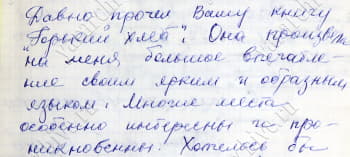 Давно прочел Вашу книгу
"Горький хлеб". Она произвела
на меня большое впечатле-
ние своим ярким и образным
языком. Многие места
особенно интересны и про-
никновенны. Хотелось бы